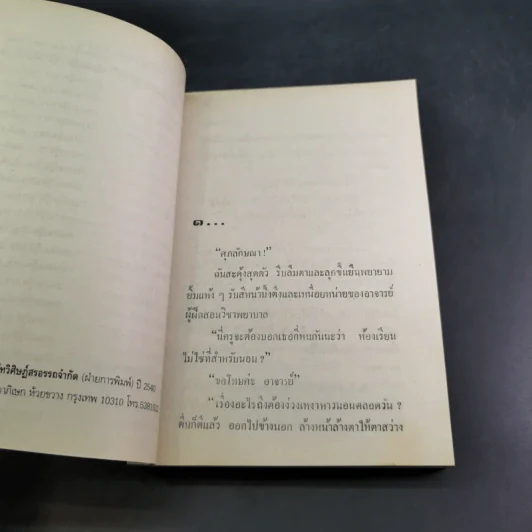 ๑...
“ศุภลักษณา!”
ฉันสะดุ้งสุดตัว รีบลืมตาและลุกขึ้นยืนพยายาม
ยิ้มแห้ง ๆ รับสีหน้าบึ้งตึงและเหนื่อยหน่ายของอาจารย์
ผู้ฝึกสอนวิชาพยาบาล
“นี่ครูจะต้องบอกเธอกี่หนกันนะว่า ห้องเรียน
ไม่ใช่ที่สำหรับนอน?”
“ขอโทษค่ะ อาจารย์”
“เรื่องอะไรถึงต้องง่วงเหงาหาวนอนตลอดวัน?
ตื่นก็ดีแล้ว ออกไปข้างนอก ล้างหน้าล้างตาให้ตาสว่าง
(ฝ่ายการพิมพ์) ปี 2540
ห้วยขวาง กรุงเทพ 10310 โทร.